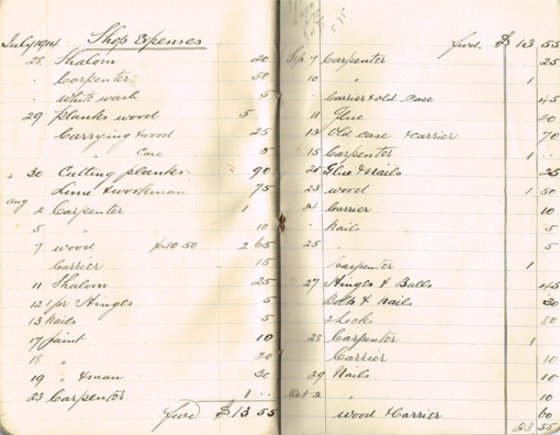 July 1914 Shop Expenses
28 Shalom 20
" Carpenter 50
" White wash 5
29 Planks wood 5
Carrying & wood 25
" Case 5
" 30 Cutting planks 90
Lime & workman 75
Aug
2 Carpenter 1
5 " 10
7 wood 10.50 2 65
Carrier 15
11 Shalom 25
12 1 pr Hinges 5
13 Nails 5
17 Paint 10
18 " 20
19 " & man 30
23 Carpenter 1 "
fwd $ 13 55
fwd. $ 13 55
Sep 7 Carpenter 25
10 " 1
" Carrier & old case 45
11 Glue 20
13 Old case & carrier 70
15 Carpenter 1
20 Glue & Nails 25
23 wood 1 50
24 Carrier 10
" Nails 5
25 " 5
Carpenter 1
27 Hinges & Balls 45
Bolts & Nails 30
2 Locks 80
28 Carpenter 1
Carrier 10
29 Nails 10
Oct 2 " 10
wood & Carrier 60
23 55